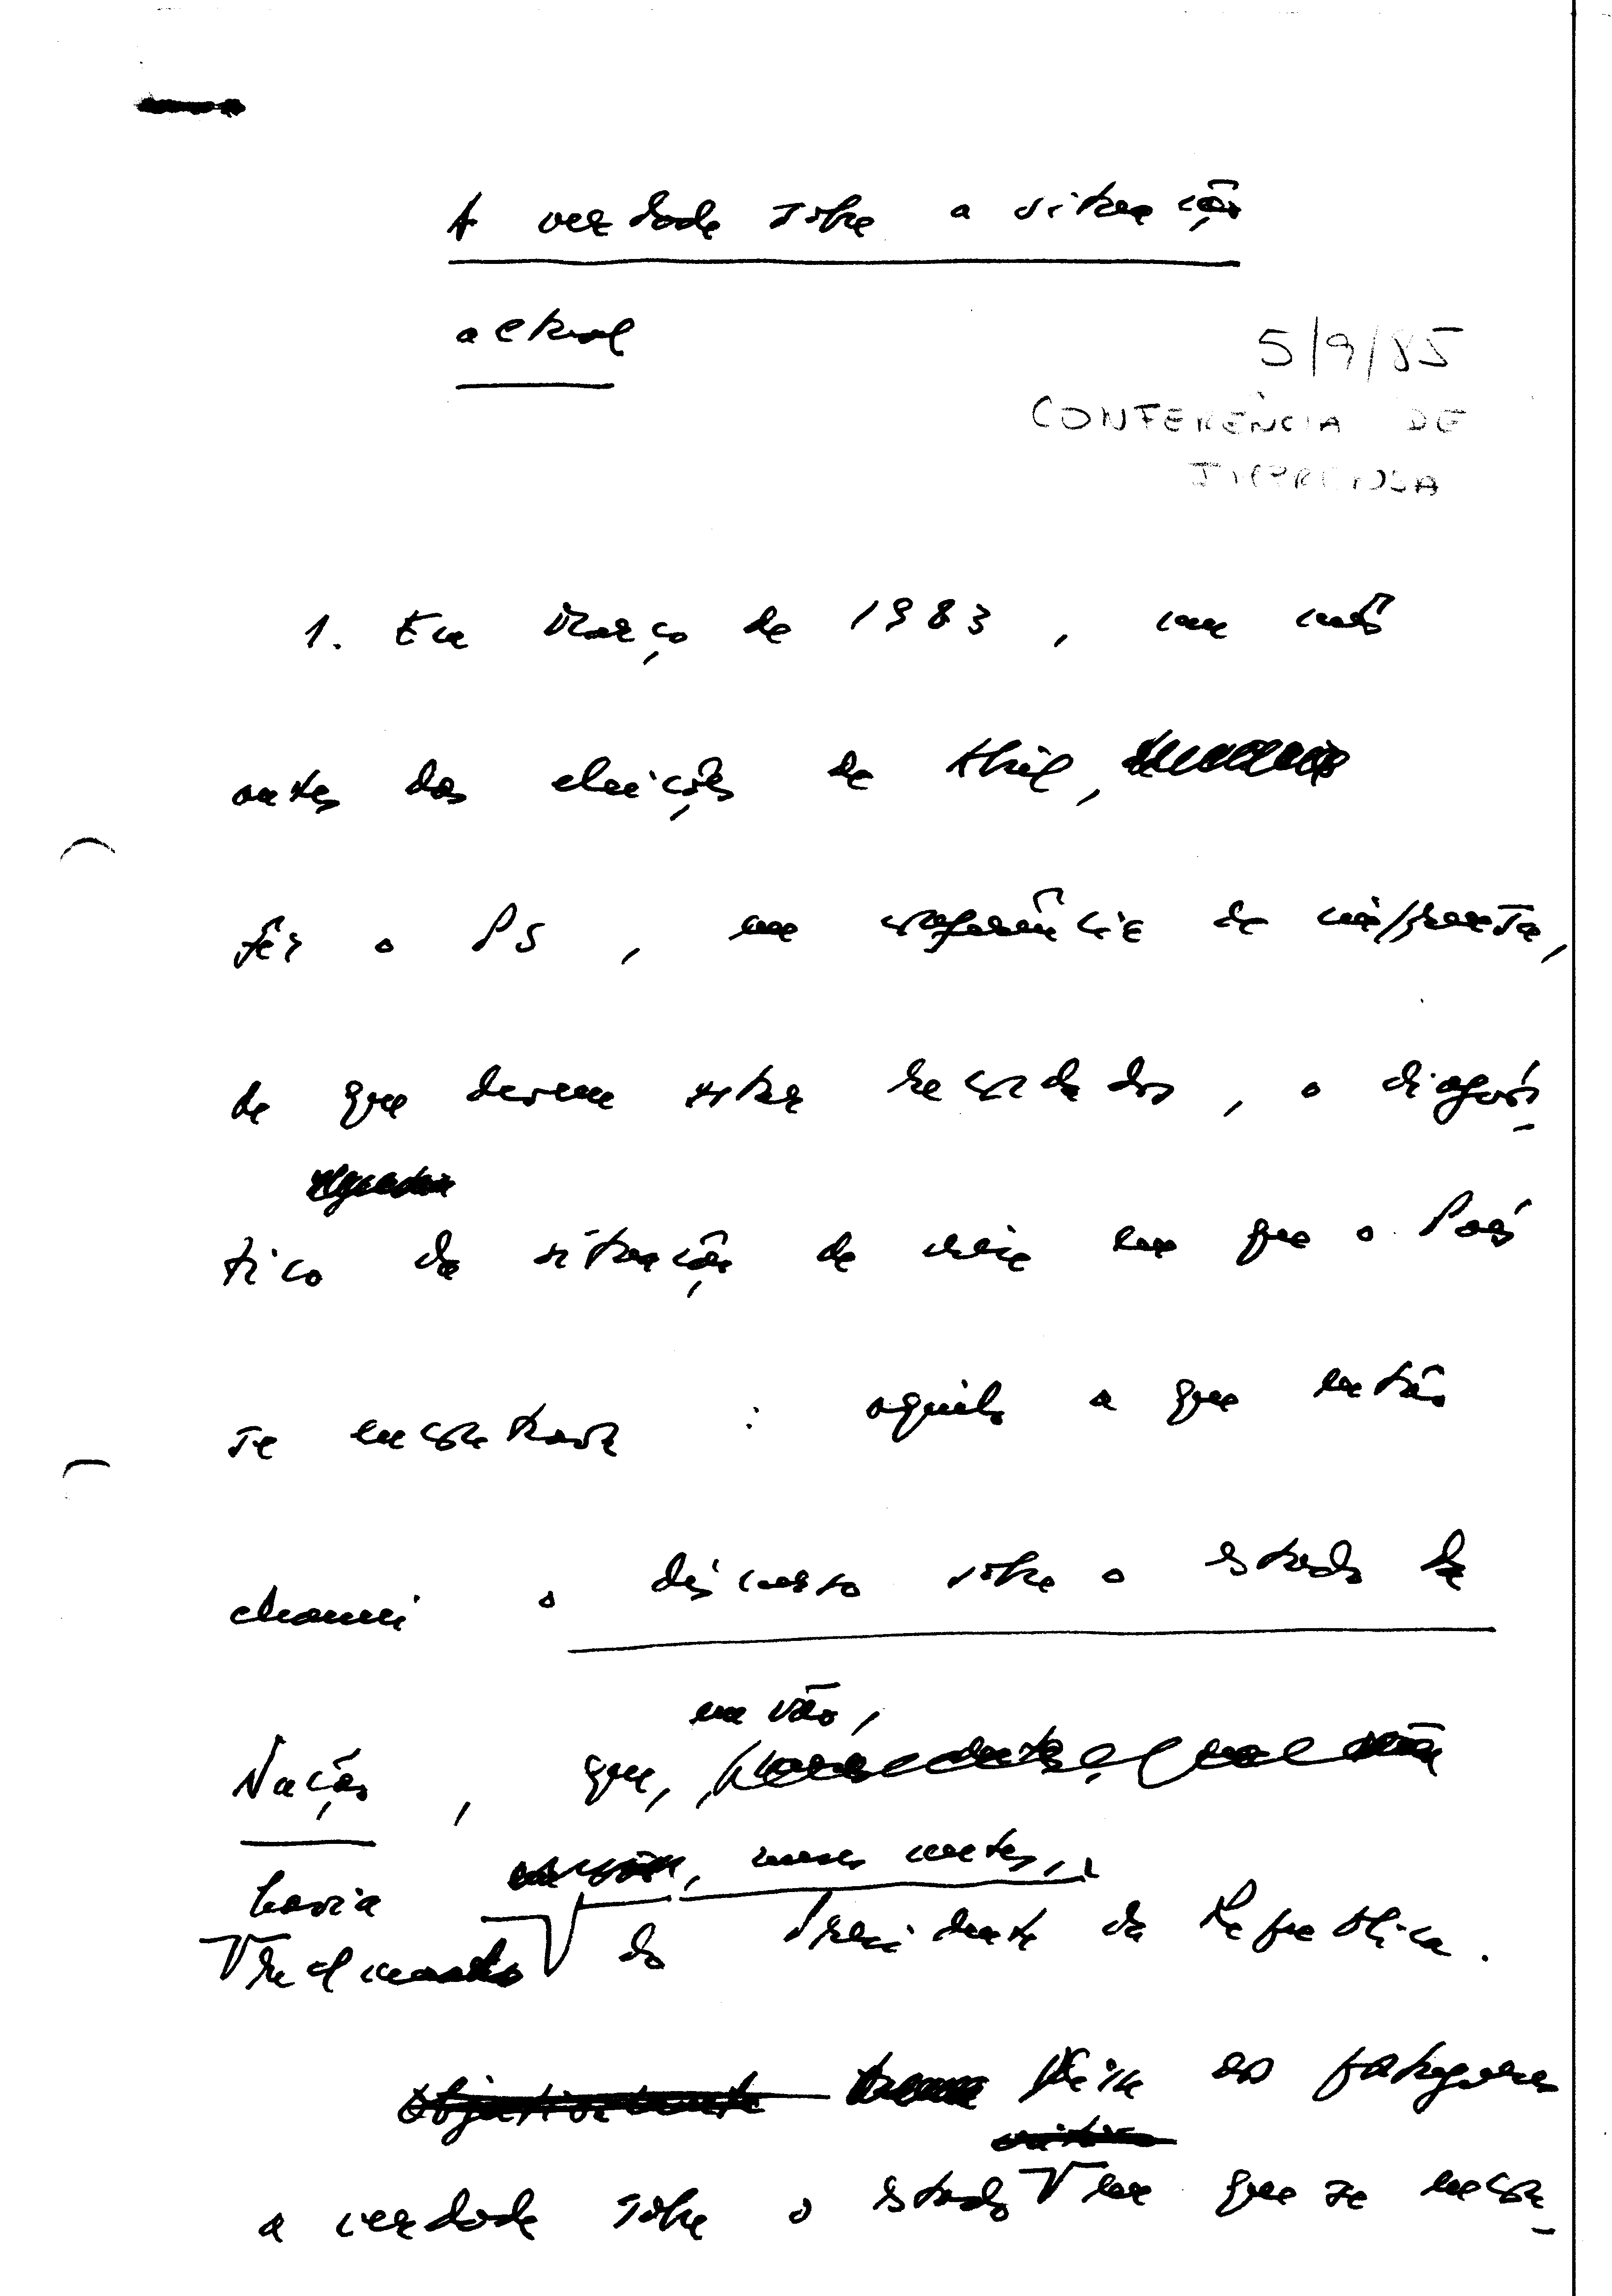 A verdade sobre a situação
actual
5/9/85
CONFERÊNCIA DE
IMPRENSA
1. Em Março de 1983, um mês
antes das eleições de Abril,
fez o PS, em conferência de imprensa,
de que devem estar recordados, o diagnós-
tico da situação de crise em que o País
se encontrava: aquilo a que então
chamei o discurso sobre o estado da
em vão,
Nação, que,
havia meses antes,
reclamado do Presidente da República.
Disse aos portugueses
a verdade sobre o estado em que se encon-